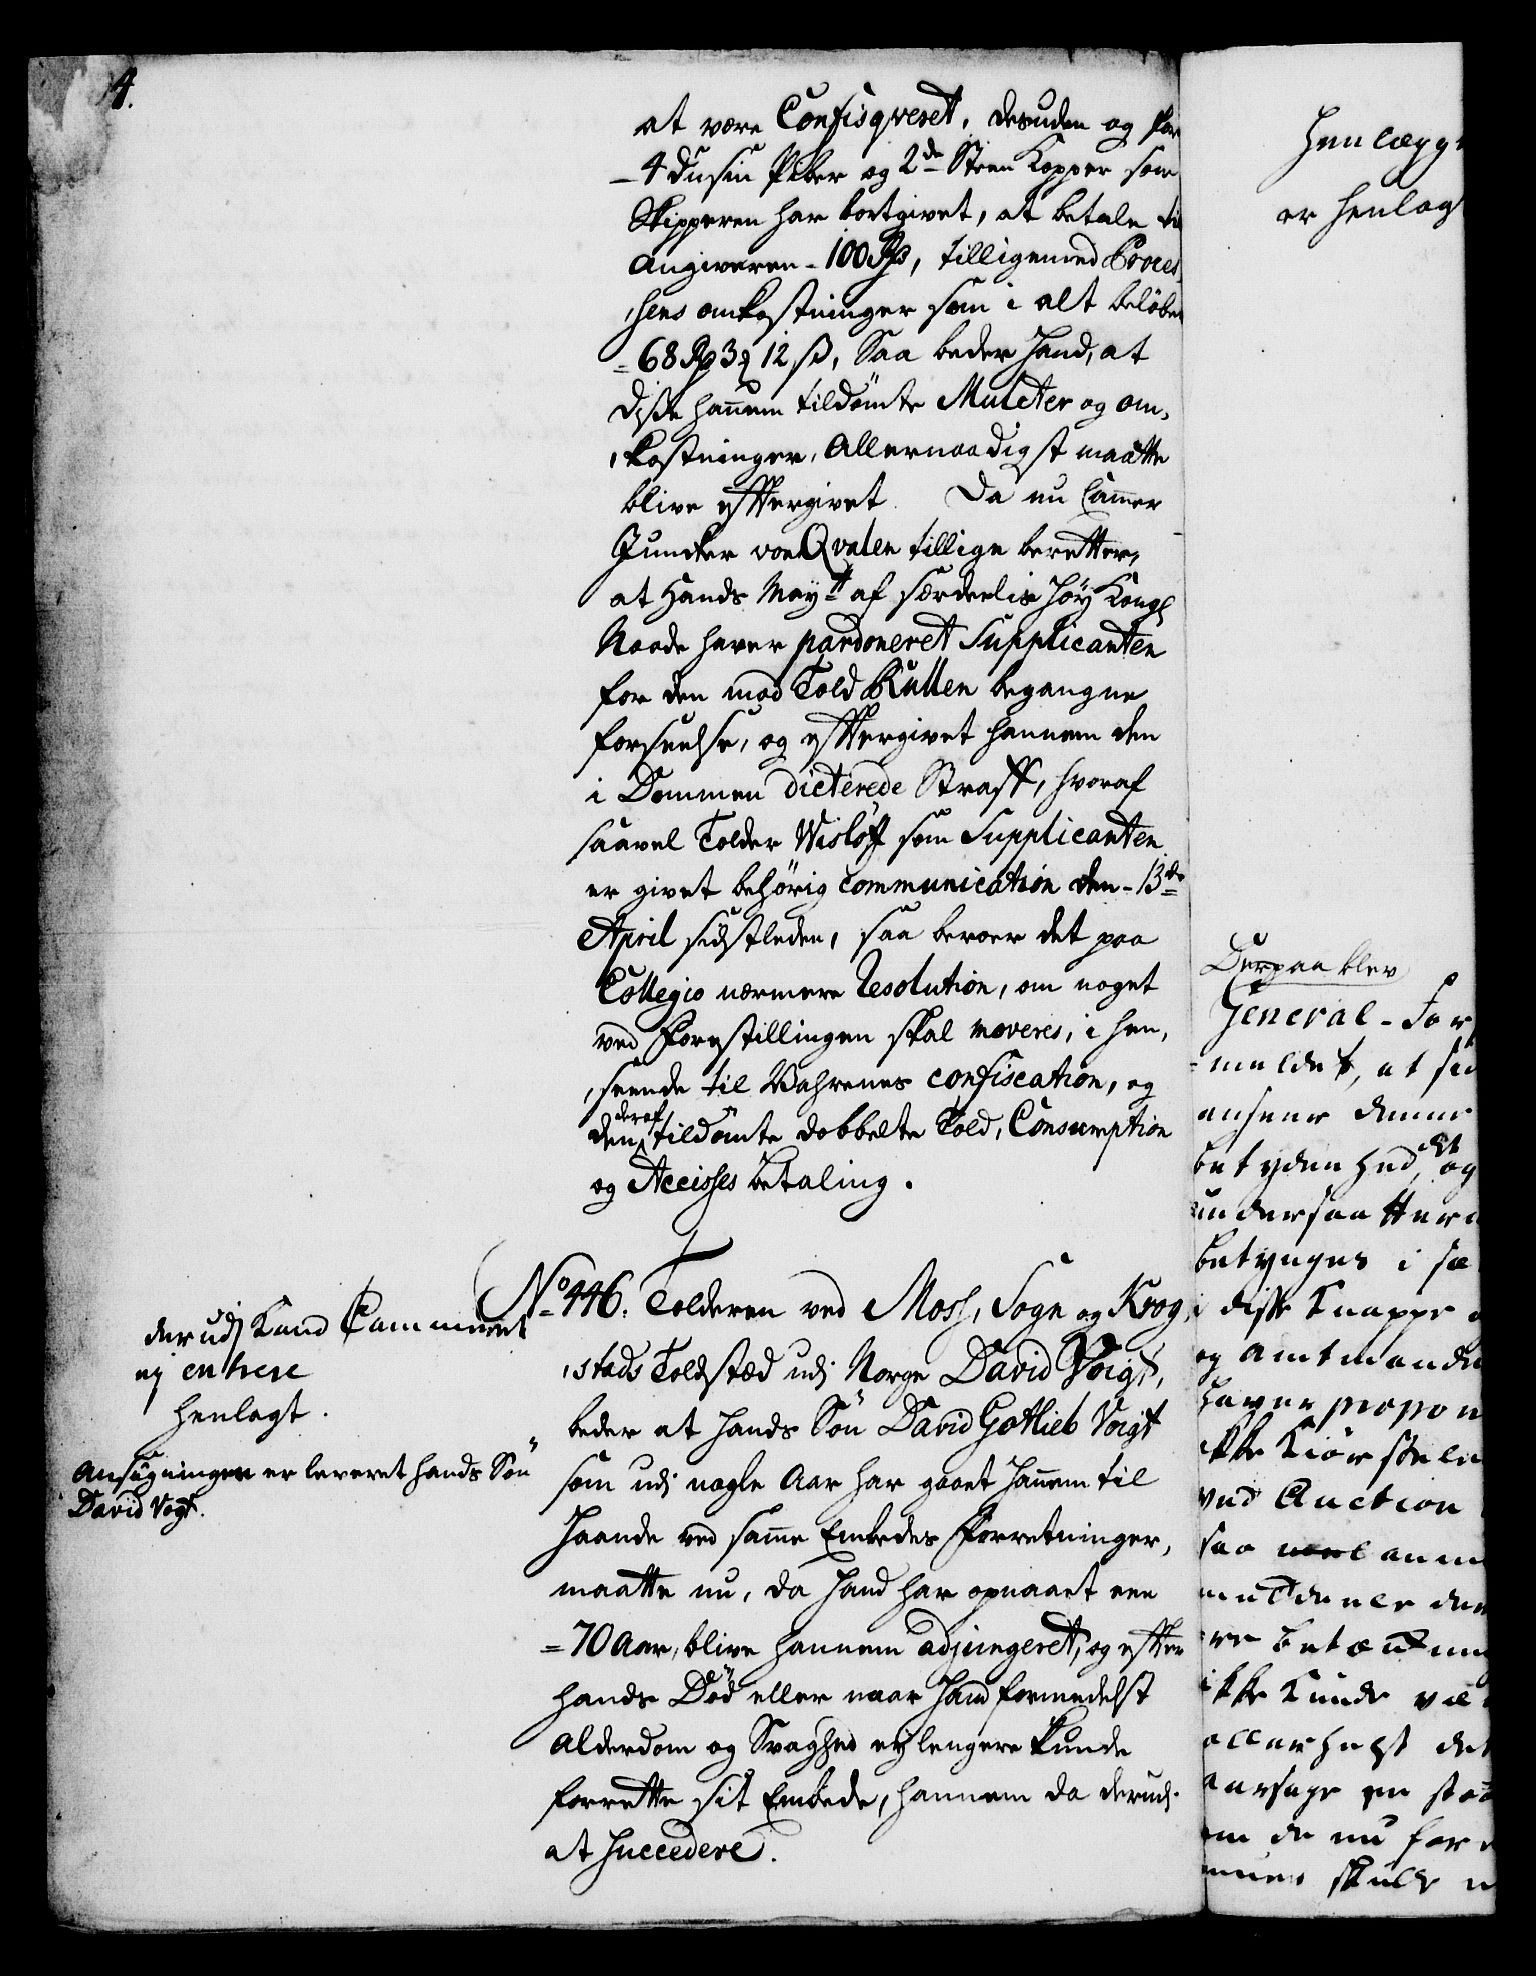 4.
at være Confisqveret, desuden og for
4 Dusin Piber og 2de Steen Kopper som
Skipperen har bortgivet, at betale til
Angiveren 100 Rd, tilligemed Proces
sens omkostninger som i alt beløber
68 Rd 3 12 ß, Saa beder Hand, at
disse hannem tildømte Mulcter og om,
kostninger, Allernaadigst maatte
blive efftergivet. Da nu Cammer
Juncker von Qvalen tillige beretter,
at Hands Mayt af særdeelis Høy Kongl
Naade haver pardoneret Supplicanten
for den mod Told Rullen begangne
forseelse, og efftergivet hannem den
i Dommen dicterede Straff, hvoraf
saavel Tolder Wisløff som Supplicanten
er givet behørig communication den 13de
April sidstleden, saa beroer det paa
Collegio nærmere Resolution, om noget
ved Forestillingen skal moveres, i hen,
seende til Wahrenes confiscation, og
den deraf tildømte dobbelte Told, Consumption
og Accisses betaling.
No 446. Tolderen ved Moss, Sogn og Krog,
stads Toldstæd udj Norge David Voigt,
beder at hands Søn David Gotlieb Voigt
som udj nogle Aar har gaaet Hannem til
Haande ved samme Embedes Forretninger,
maatte nu, da Hand har opnaaet een
70 Aar, blive hannem adjungeret, og effter
hands Død eller naar Hand formedelst
Alderdom og Svaghed ey lengere kunde
forrette sit Embede, hannem da derudj
at succedere.
derudj Kand Cammeret
ej entrere
henlagt.
Ansøgningen er leveret hands Søn
David Vogt.
Henlægg
er henlag
Derpaa blev
General-For
meldet, at
ansene denne
betydenhed, og
undersaatter
betynges i
disse Knappe
og Amtmand
haver propon
ikke
ved Auction
saa
ikke Kunde
allerhelst det
aarsage en
om de nu for
skulde